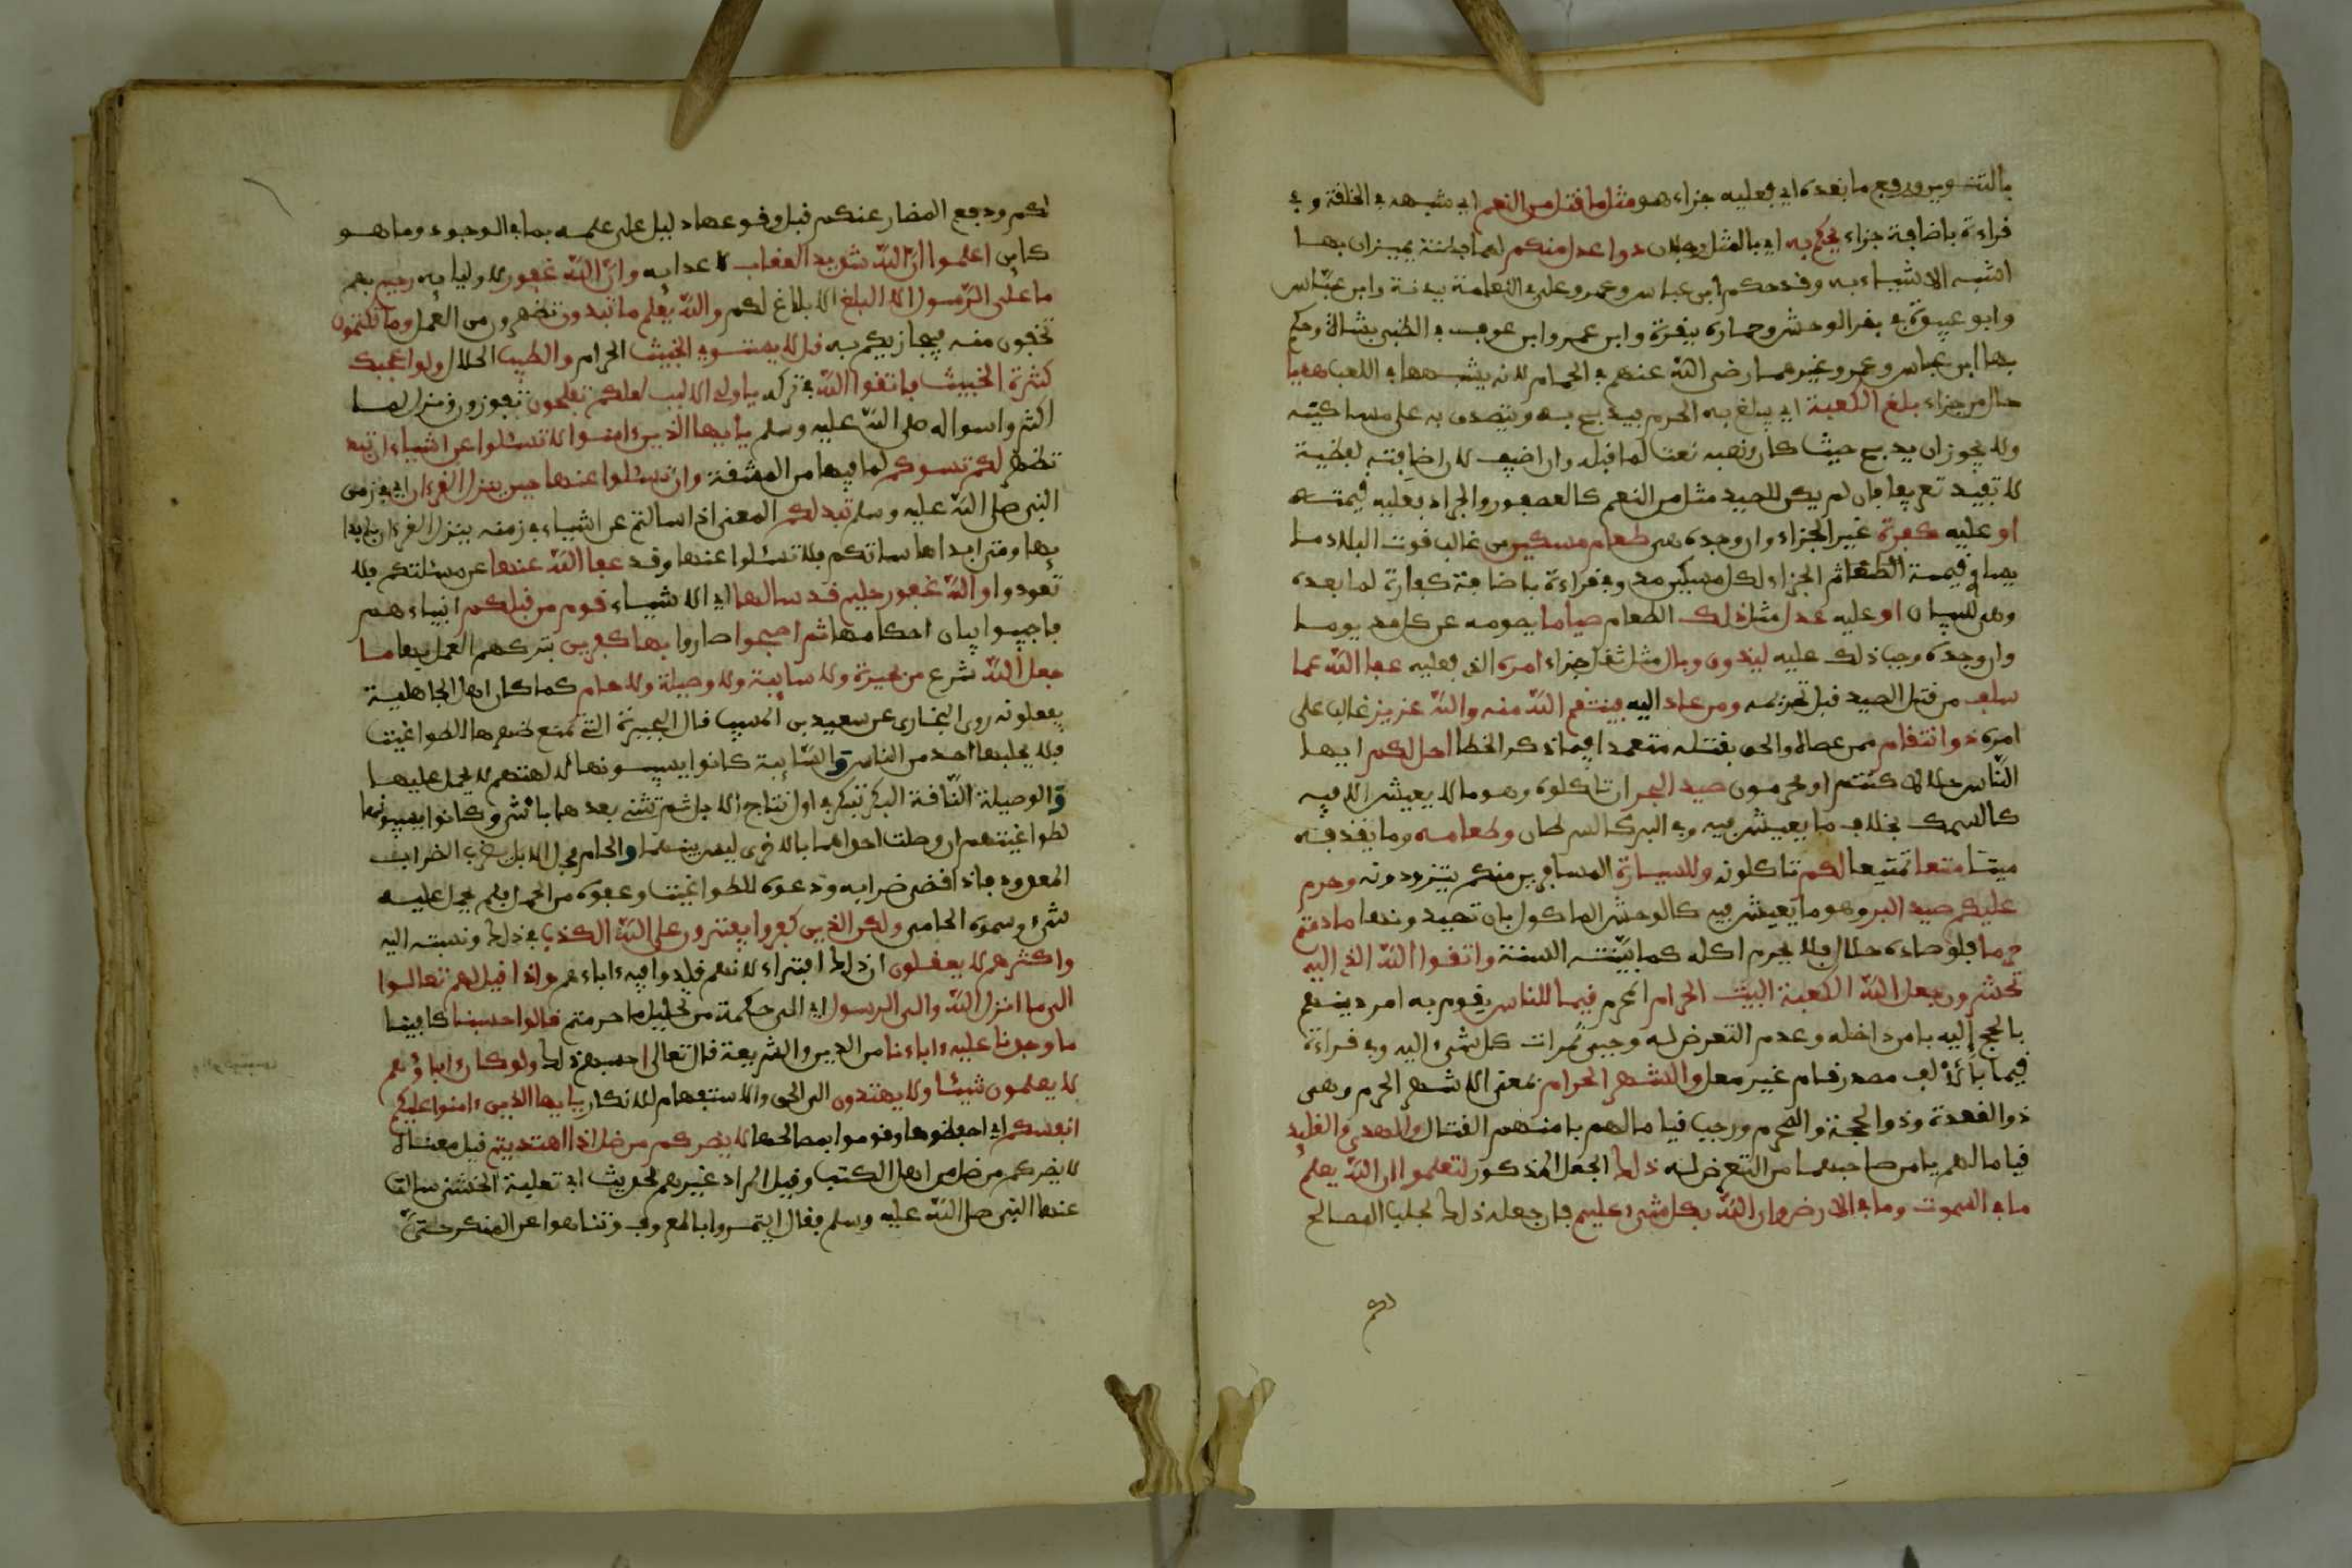 بالتنوين ورفع ما بعده اي فعليه جزاء هو مثل ما قتل من النعم اي شبهه في الخلقة وفي
قراءة باضافة جزاء يحكم به اي بالمثل رجلان ذوا عدل منكم لهما فطنة يميزان بها
اشبه الاشياء به وقد حكم ابن عباس وعمر وعلي في النعامة ببدنة وابن عباس
وابو عبيدة في بقر الوحش وحماره ببقرة وابن عمر وابن عوف في الظبي بشاة وحكم
بها ابن عباس وعمر وغيرهما رضي الله عنهم في الحمام لانه يشبهها في العب هديا
حال من جزاء بلغ الكعبة اي يبلغ به الحرم فيذبح به ويتصدق به على مساكينه
ولا يجوز ان يذبح حيث كان ونصبه نعتا لما قبله وان اضيف لان اضافته لفظية
لا تفيد تعريفا فان لم يكن للصيد مثل من النعم كالعصفور والجراد فعليه قيمته
او عليه كفرة غير الجزاء وان وجده هي طعام مسكين من غالب قوت البلاد ما
يساوي قيمة الجزاء لكل مسكين مد وفي قراءة باضافة كفارة لما بعده
وهي للبيان او عليه عدل مثل ذلك الطعام صياما يصومه عن كل مد يوما
وان وجده وجب ذلك عليه ليذوق وبال مثل ثقل جزاء امره الذي فعليه عفا الله عما
سلف من قتل الصيد قبل تحريمه ومن عاد اليه فينتقم الله منه والله عزيز غالب على
امره ذو انتقام ممن عصاه والحق بقتله متعمدا فيما ذكر الخطا احل لكم ايها
الناس حلالا كنتم او محرمون صيد البحر ان تاكلوه وهو ما لا يعيش الا فيه
كالسمك بخلاف ما يعيش فيه وفي البر كالسرطان وطعامه وما يقذفه
ميتا متعا تمتيعا لكم تاكلونه وللسيارة المسافرين منكم يتزودونه وحرم
عليكم صيد البر وهو ما يعيش فيه كالوحش الماكول بان تصيدونها ما دمتم
حرما فلو صاده حلال فلا يحرم اكله كما بينته السنة واتقوا الله الذي اليه
تحشرون جعل الله الكعبة البيت الحرام المحرم قيما للناس يقوم به امر دينهم
بالحج اليه بامن داخله وعدم التعرض له وجبى ثمرات كل شيء اليه وفي قراءة
قيما بلا الف مصدر قام غير معل والشهر الحرام بمعنى الاشهر الحرم وهي
ذو القعدة وذو الحجة والمحرم ورجب قياما لهم بامنهم القتال والهدي والقليد
قياما لهم يامن صاحبهما من التعرض له ذلك الجعل المذكور لتعلموا ان الله يعلم
ما في السموت وما في الارض وان الله بكل شيء عليم فان جعله ذلك لجلب المصالح
لكم ودفع المضار عنكم قبل وقوعها دليل على علمه بما في الوجود وما هو
كاين اعلموا ان الله شديد العقاب لاعدايه وان الله غفور لاوليايه رحيم بهم
ما على الرسول الا البلغ الابلاغ لكم والله يعلم ما تبدون تظهرون من العمل وما تكتمون
تخفون منه فيجازيكم به قل لا يستوي الخبيث الحرام والطيب الحلال ولو اعجبك
كثرة الخبيث فاتقوا الله في تركه ياولي الالبب لعلكم تفلحون تفوزون ونزل لما
اكثروا سواله صلى الله عليه وسلم يأيها الذين ءامنوا لا تسئلوا عن اشياء ان تبد
تظهر لكم تسوكم لما فيها من المشقة وان تسئلوا عنها حين ينزل القرءان اي في زمن
النبي صلى الله عليه وسلم تبد لكم المعنى اذا سالتم عن اشياء في زمنه ينزل القرءان بابدا
يها ومتى ابداها ساتكم فلا تسئلوا عنها وقد عفا الله عنها عن مسئلتكم فلا
تعودوا والله غفور حليم قد سالها اي الاشياء قوم من قبلكم انبياءهم
فاجيبوا ببيان احكامها ثم اصبحوا صاروا بها كفرين بتركهم العمل بها ما
جعل الله شرع من بحيرة ولا سايبة ولا وصيلة ولا حام كما كان اهل الجاهلية
يفعلونه روى البخاري عن سعيد بن المسيب قال البحيرة التي يمنع ضرها للطواغيت
فلا يحلبها احد من الناس والسايبة كانوا يسيبونها لالهتهم لا يحمل عليها
والوصيلة الناقة البكر تبكر في اول نتاج الابل ثم تثني بعدها بانثى وكانوا يسيبونها
لطواغيتهم ان وصلت احداهما بالاخرى ليس بينهما والحام فحل الابل يضرب الضراب
المعدود فاذا قضى ضرابه ودعوه للطواغيت وعفوه من الحمل فلم يحمل عليه
شيء وسموه الحامي ولكن الذين كفروا يفترون على الله الكذب في ذلك ونسبته اليه
واكثرهم لا يعقلون ان ذلك افتراء لانهم قلدوا فيه ءاباءهم واذا قيل لهم تعالوا
الى ما انزل الله والى الرسول اي الى حكمه من تحليل ما حرمتم قالوا حسبنا كافينا
ما وجدنا عليه ءاباءنا من الدين والشريعة قال تعالى احسبهم ذلك ولو كان اباؤهم
لا يعلمون شيئا ولا يهتدون الى الحق والاستفهام للانكار يأيها الذين ءامنوا عليكم
انفسكم اي احفظوها وقوموا بمصالحها لا يضركم من ضل اذا اهتديتم قيل معناه
لا يضركم من ضل من اهل الكتب وقيل المراد غيرهم لحديث ابي ثعلبة الخشني سالت
عنها النبي صلى الله عليه وسلم فقال ايتمروا بالمعروف وتناهوا عن المنكر حتى